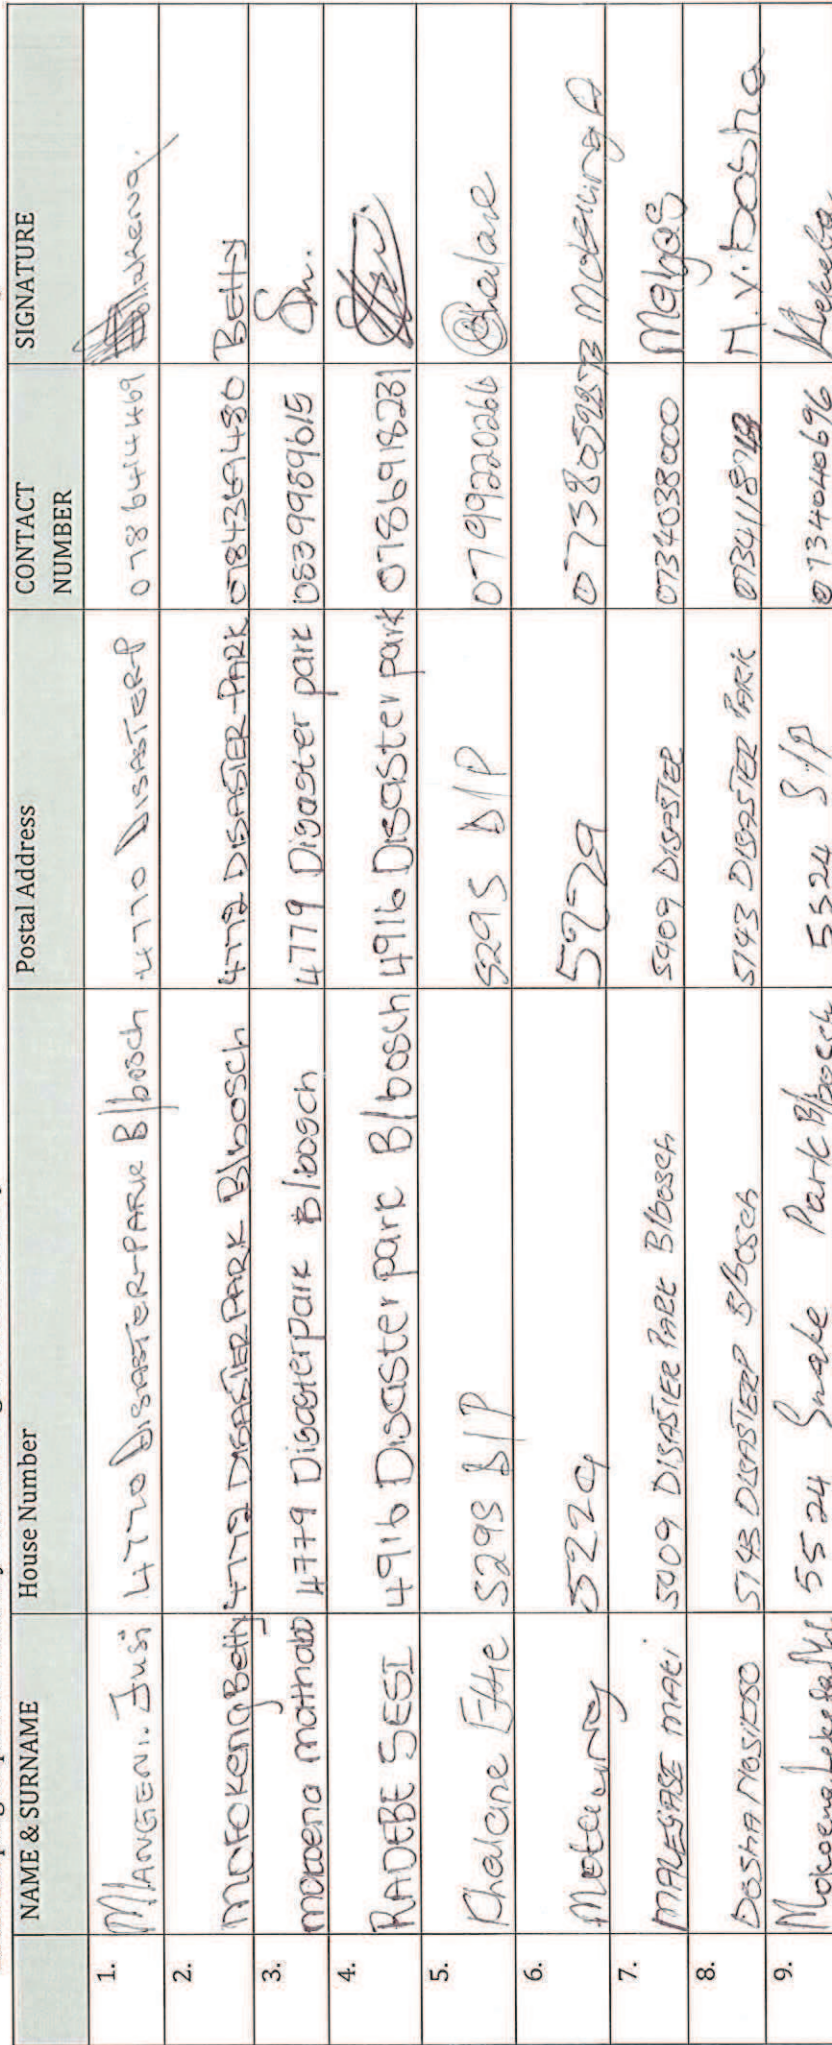 NAME & SURNAME House Number Postal Address CONTACT NUMBER SIGNATURE
1. MANGENI. Jusi 4770 DISASTER-PARK B/bosch 4770 DISASTER-P 0786414469
2. MOFOKENG Betty 4772 DISASTER PARK B/bosch 4772 DISASTER-PARK 0784369480 Betty
3. mokoena mathabo 4779 Disasterpark B/bosch 4779 Disaster park 0839989615
4. RADEBE SESI 4916 Disaster park B/bosch 4916 Disaster park 0786918231
5. 5295 D/P 5295 D/P 0799220266
6. 0738059272
7. 5909 DISASTER PARK B/bosch 5909 DISASTER 0734038000
8. 5143 DISASTERP B/bosch 5143 DISASTER PARK
9. Mokoena 5524 Snake Park B/bosch 5524 S/P 0734040696